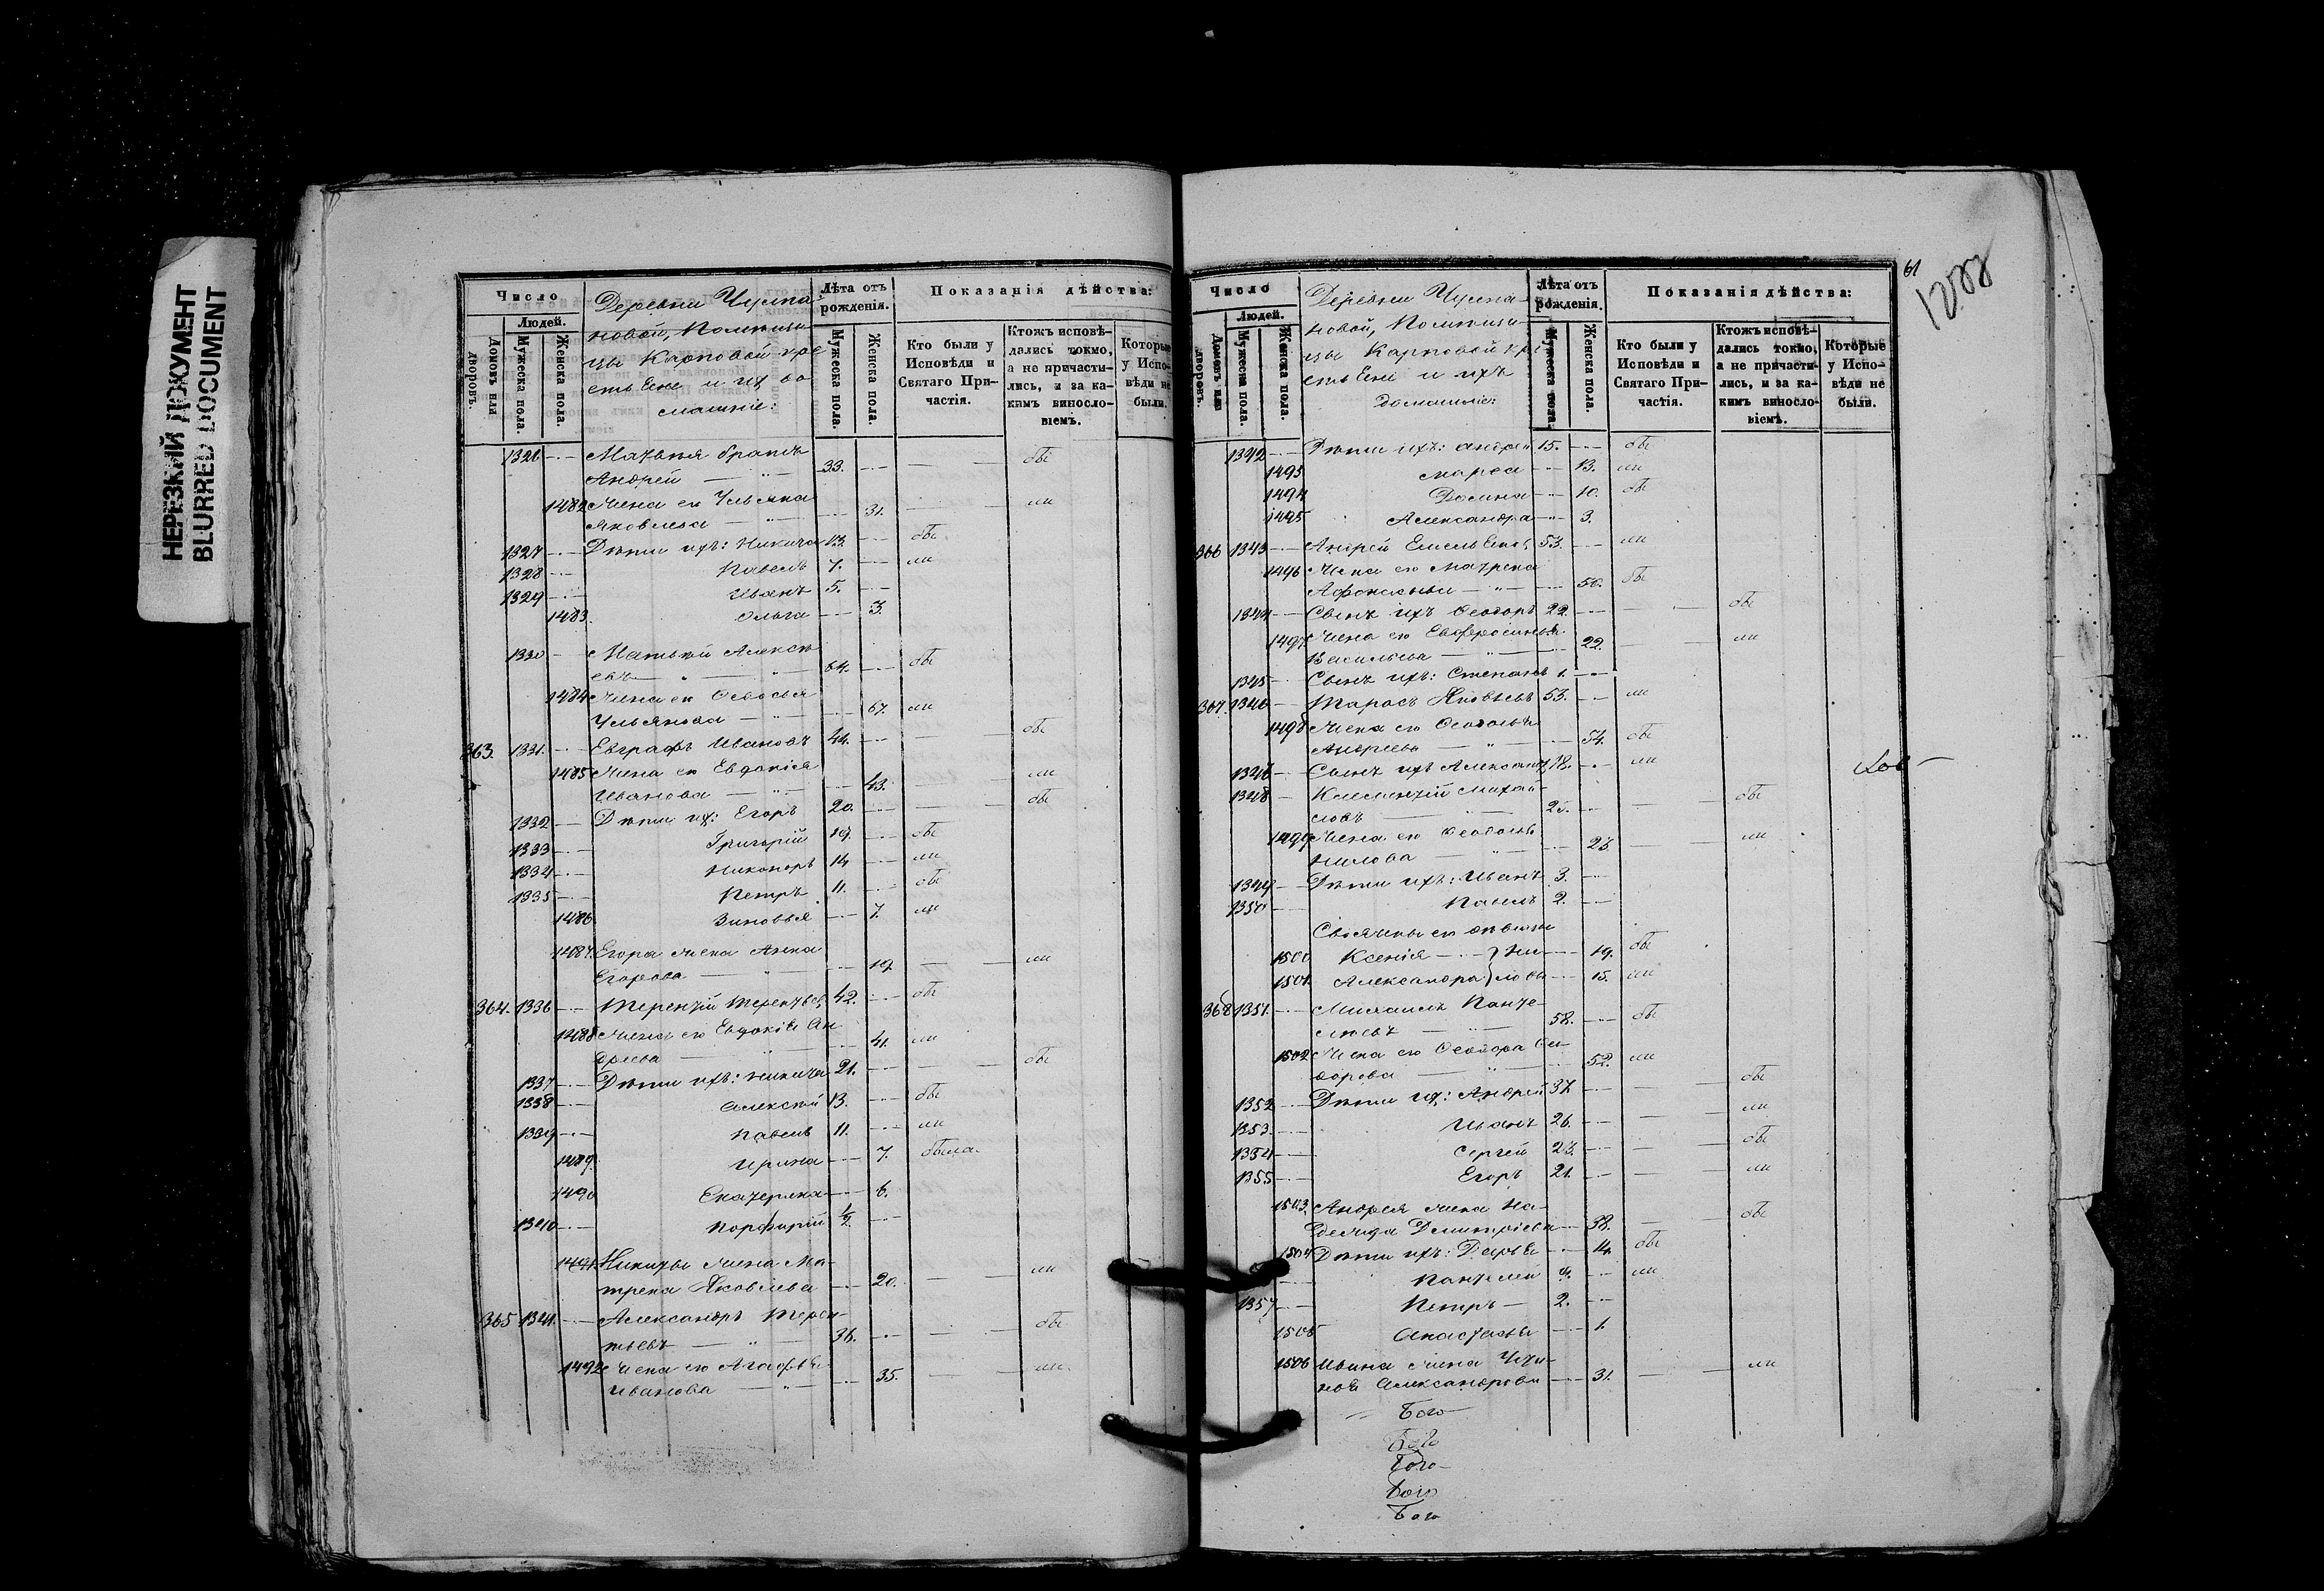 НЕРЕЗКИЙ ДОКУМЕНТ
BLURRED DOCUMENT
Число
Людей.
Домовъ или дворовъ.
Мужеска пола.
Женска пола.
Деревни Чумпа-
новой,
Карповой кре
стьяне и их до
машніе:
Лѣта отъ
рожденія.
Мужеска пола.
Женска пола.
Показанія дѣйства:
Кто были у
Исповѣди и
Святаго При-
частія.
Ктожъ исповѣ-
дались токмо,
а не причасти-
лись, и за ка-
кимъ винослов-
іемъ.
Которые
у Испо-
вѣди не
были.
братъ
Андрей 33. бы
1482 Жена ею Ульяна
Яковлева 31. ли
1327 Дѣти ихъ: Никита 13. бы
1328 Павелъ 7. ли
1329 Иванъ 5.
1483 Ольга 3.
1330 Матвѣй Алексѣ
евъ 64. бы
1484 Жена ею
Ульянова 67. ли
363. 1331. Евграфъ Ивановъ 44. бы
1485 Жена ею Евдокія
Иванова 43. ли
1332 Дѣти их: Егоръ 20. бы
1333 Григорій 17. бы
1334 Никаноръ 14 ли
1335 Петръ 11. бы
1486 Зиновья 7. ли
1487. Егора жена Анна
Егорова 19. ли
364. 1336 Терентій 42. бы
1488 Жена ею Евдокія Ан
дреева 41. ли
1337 Дѣти ихъ: Никита 21. бы
1338 Алексѣй 13. бы
1339 Павелъ 11. ли
1489. Ирина 7. была.
1490 Екатерина 6.
1340 Порфирій 1/2.
1491 Никиты жена Ма-
трена Яковлева 20. ли
365 1341. Александръ
36. бы
1492 Жена ею Агафья
Иванова 35. ли
61
Число
Людей.
Домовъ или дворовъ.
Мужеска пола.
Женска пола.
Деревни Чумпа-
новой,
Карповой кре
стьяне и ихъ
домашніе:
Лѣта отъ
рожденія.
Мужеска пола.
Женска пола.
Показанія дѣйства:
Кто были у
Исповѣди и
Святаго При-
частія.
Ктожъ исповѣ-
дались токмо,
а не причасти-
лись, и за ка-
кимъ винослов-
іемъ.
Которые
у Испо-
вѣди не
были.
1342 Дѣти ихъ: Андрей 15. бы
1493 Марфа 13. ли
1494 10. бы
1495 Александра 3.
366 1343 Андрей 53. ли
1496 Жена ею Матрена
50. бы
1344 Сынъ ихъ Ѳеодоръ 22. бы
1497 Жена ею Евфросинья
Васильева 22. ли
1345 Сынъ ихъ: Степанъ 1.
367. 1346 Тарасъ Яковлевъ 53. ли
1498 Жена ею
Андреева 54. бы
Сынъ ихъ Александр 18. ли
1348 Климентій Михай-
ловъ 25. бы
1499 Жена ею
Нилова 25. ли
1349 Дѣти ихъ: Иванъ 3.
1350 Павелъ 2.
1500 Ксенія Ни 19. бы
1501. Александра лова 15. ли
368 1351. Михаилъ Панте-
58. бы
1502 Жена ею Ѳеодора
52. ли
1352 Дѣти их: Андрей 37 бы
1353. Иванъ 26. ли
1354 Сергѣй 23. бы
1355 Егоръ 21. ли
1503. Андрея жена На-
дежда Дмитріева 38. бы
1504 Дѣти ихъ: Дарья 14. бы
Пантелей ли
1357 Петръ 2.
1505 Анастасья 1.
1506 Ивана жена
Александрова 31. ли